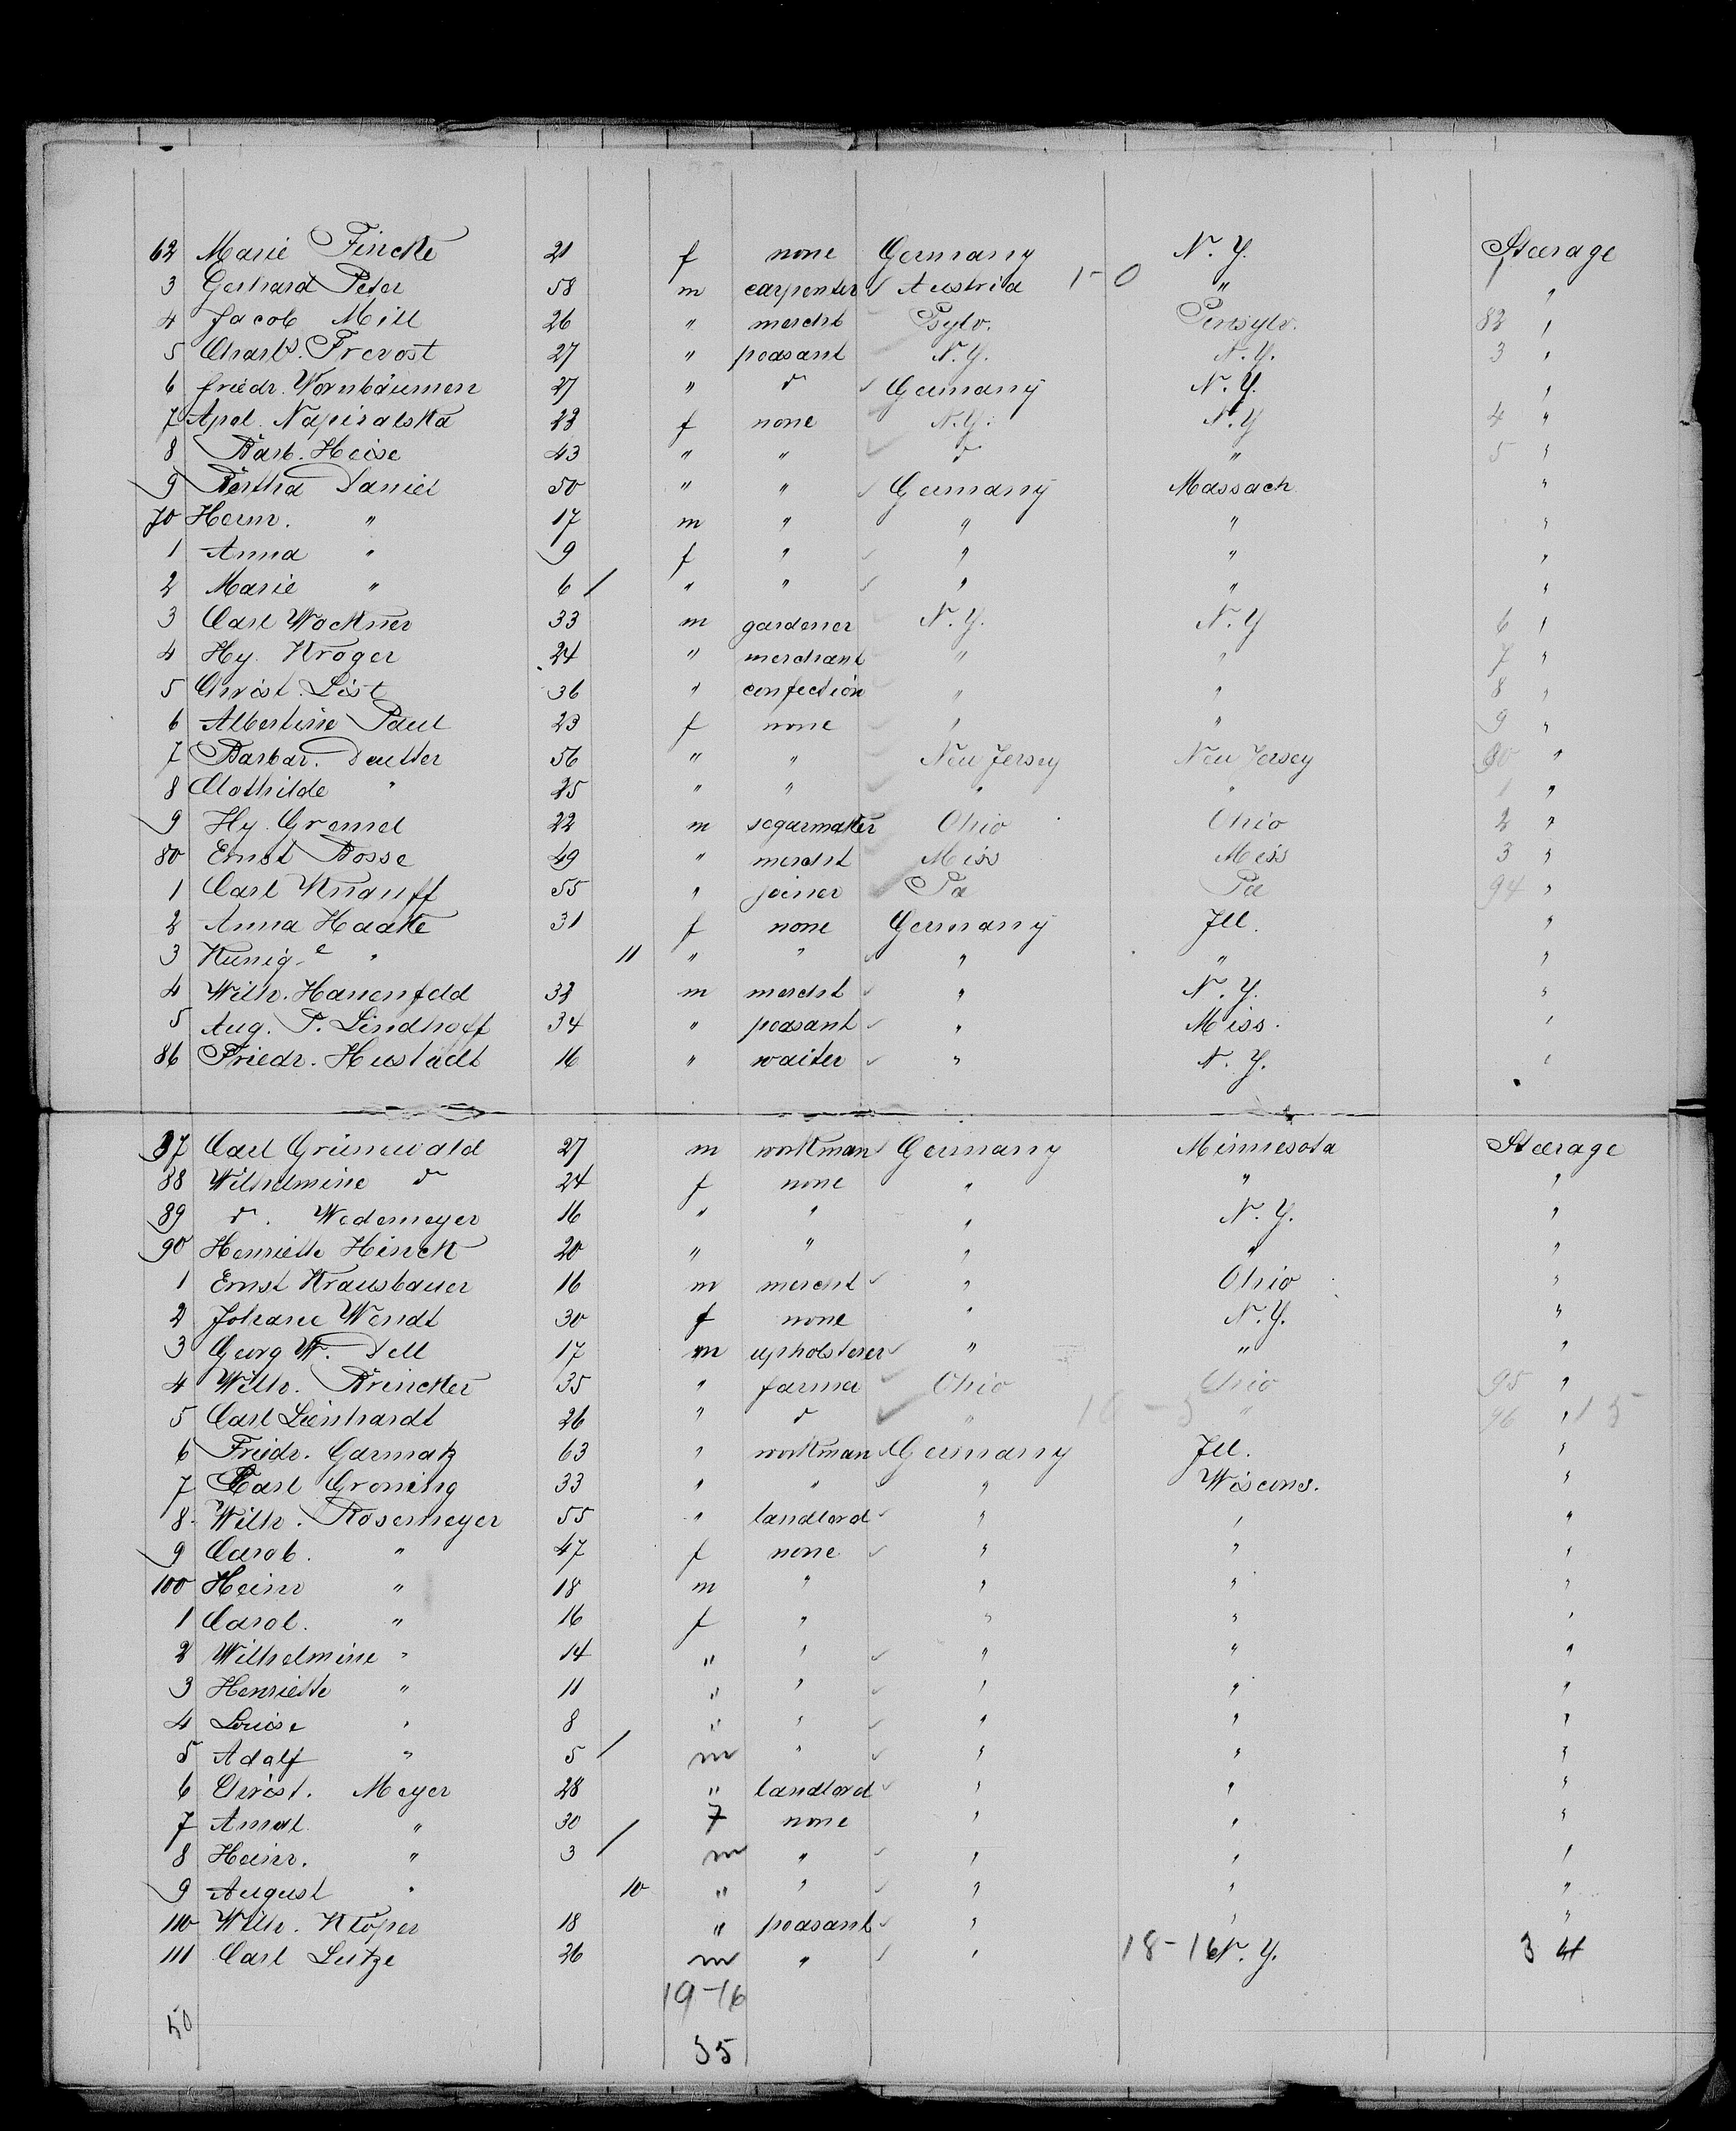 62 Marie Fincke 21 f none Germany N. Y. Steerage
3 Gerhard Peter 58 m carpenter Austria 1-0 " "
4 Jacob Mill 26 " mercht Psylv. Pensylv. 82 "
5 Charls. Prevost 27 " peasant N.Y. N.Y. 3 "
6 Friedr. Wornbäumen 27 " do Germany N. Y. "
7 Apol. Napiralska 23 f none N.Y. N.Y 4 "
8 Barb. Heise 43 " " do " 5 "
9 Bertha Daniel 50 " " Germany Massach. "
70 Herm. " 17 m " " " "
1 Anna " 9 f " " " "
2 Marie " 6 / " " " " "
3 Carl Wockner 33 m gardener N.Y. N.Y 6 "
4 Hy. Kroger 24 " merchant " " 7 "
5 Christ. List 36 " confection " " 8 "
6 Albertine Paul 23 f none " " 9 "
7 Barbar. Deutter 56 " " New Jersey New Jersey 90 "
8 Clothilde " 25 " " " " 1 "
9 Hy. Gremel 22 m segarmaker Ohio Ohio 2 "
80 Ernst Bosse 49 " mercht Miss Miss 3 "
1 Carl Knauff 55 " joiner Pa Pa 94 "
2 Anna Haake 31 f none Germany Ill. "
3 Kunig.e " 11 " " " " "
4 Wilh. Hanenfeld 32 m mercht " N. Y. "
5 Aug. P. Lindhoff 34 " peasant " Miss. "
86 Friedr. Hustädt 16 " waiter " N. Y. "
87 Carl Grünewald 27 m workman Germany Minnesota Steerage
88 Wilhelmine do 24 f none " " "
89 do. Wedemeyer 16 " " " N. Y. "
90 Henriette Hinck 20 " " " " "
1 Ernst Krausbauer 16 m mercht " Ohio "
2 Johane Wendt 30 f none " N.Y. "
3 Georg W. Dell 17 m upholsterer " " "
4 Wilh. Brincker 35 " farmer Ohio Ohio 95 "
5 Carl Lienhardt 26 " do " " 96 " 15
6 Friedr. Garmatz 63 " workman Germany Ill. "
7 Carl Groning 33 " " " Wiscons. "
8. Wilh. Rosemeyer 55 " landlord " " "
9 Carob. " 47 f none " " "
100 Heinr " 18 m " " " "
1 Carol. " 16 f " " " "
2 Wilhelmine " 14 " " " " "
3 Henriette " 11 " " " " "
4 Louise " 8 " " " " "
5 Adolf " 5 / m " " " "
6 Christ. Meyer 28 " landlord " " "
7 Amal. " 30 f none " " "
8 Heinr. " 3 / m " " " "
9 August " 10 " " " " "
110 Wilh. Klöper 18 " peasant " " "
111 Carl Lutze 26 m " " 18-16 N. Y. 34
19-16
50
35